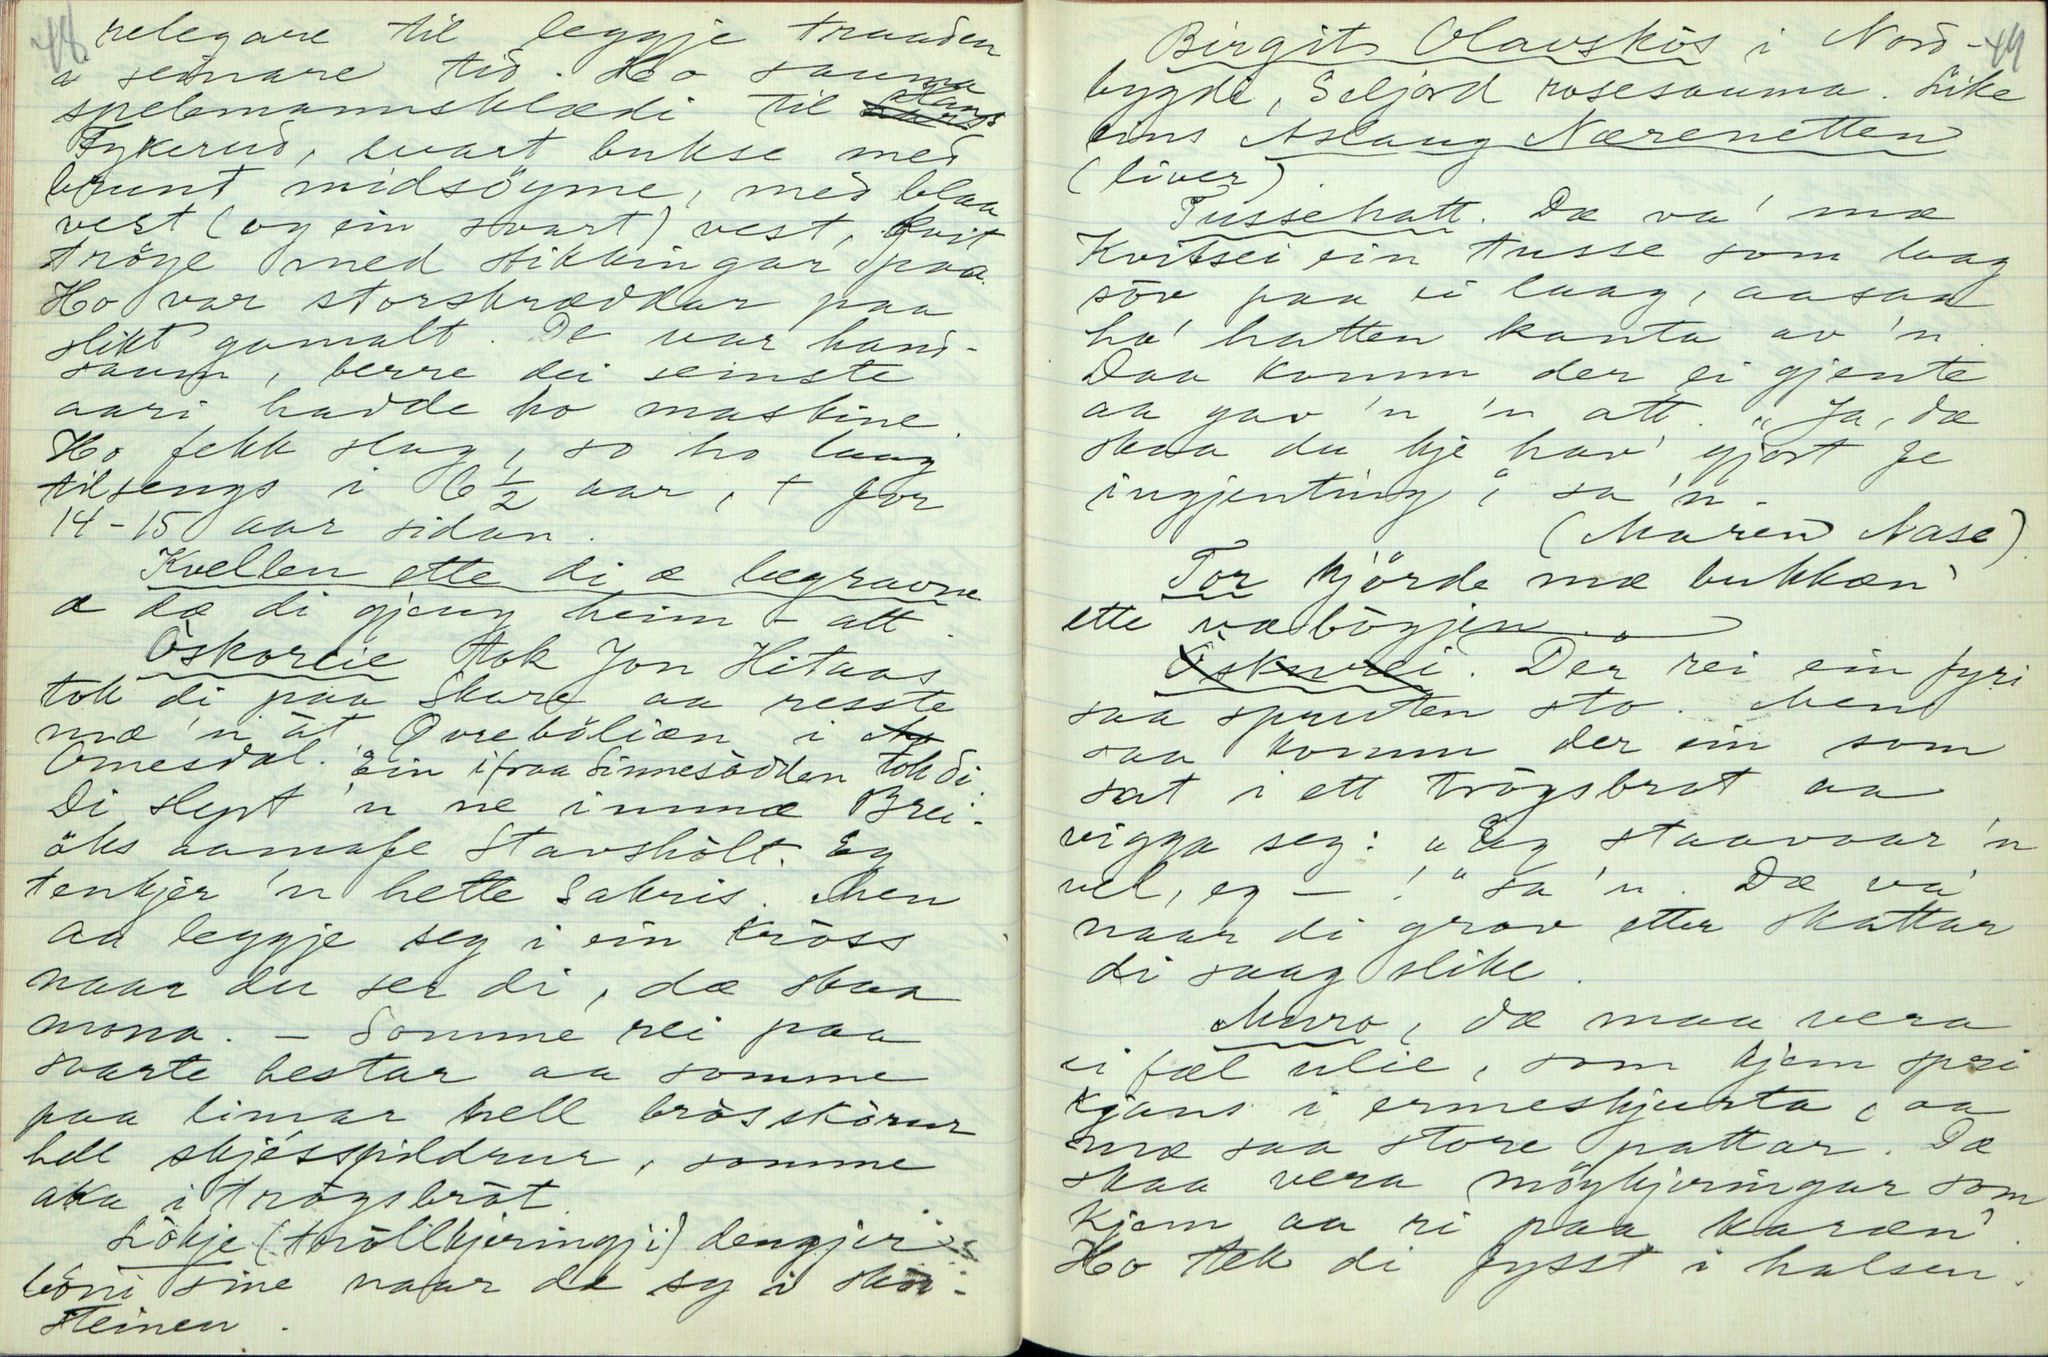 48
relegare til leggje traaden
a seinare tid. Ho sauma
spelemannsklædi til Lars
Fykerud, svart bukse med
brunt midsöyme, med blaa
vest (og ein svart) vest, kvit
tröye med stikkingar paa.
Ho var storskræddar paa
slikt gamalt. De var hand-
saum, berre dei seinste
aari hadde ho maskine.
Ho fekk slag, so ho laag
tilsengs i 6 ½ aar, + for
14-15 aar sidan.
Kvellen ette di æ begravne
æ dæ di gjeng heim - att.
Oskoreie tok Jon Hitaas
tok di paa Skare aa resste
mæ 'n åt Övreböliæn i
Omesdal. Ein ifraa Sinnesödden tok di.
Di slept 'n ne inmæ Brei-
öks aamafe Stavsholt. Eg
tenkjer 'n hette Sakris. Men
aa leggje seg i ein kross
naar du ser di, dæ skaa
mona. - Somme rei paa
svarte hestar aa somme
paa limar hell brösskörur
hell skjésspildrur, somme
aka i trögsbröt.
Lökje (tröllkjeringji) dengjer
böni sine naar de sy i skór-
steinen.
49
Birgit Olavskös i Nord-
bygdi, Seljord rosesauma. Like
eins Aslaug Nærenetten
(liver).
Tussehatt. Dæ va' mæ
Kvitsei ein tusse som laag
söv paa ei laag, aasaa
ha' hatten kanta av 'n.
Daa komm der ei gjente
aa gav 'n 'n att. "Ja, dæ
skaa du kje hav' gjort fe
ingjenting", sa 'n.
(Maren Nase)
Tor kjörde mæ bukkæn'
ette væbögjen.
Öskurei. Der rei ein fyri
saa spruten sto. Men
saa komm der ein som
sat i ett trögsbrot aa
vigga seg: "Eg staavaar 'n
vel, eg - !" sa 'n. Dæ va'
naar di grov etter skattar
di saag slike.
Muro, dæ maa vera
ei fæl ulie, som kjem spri
kjans i ermeskjurta, aa
mæ saa store pattar. Dæ
skaa vera möykjeringar som
kjem aa ri paa karæn'.
Ho tek di fysst i halsen.